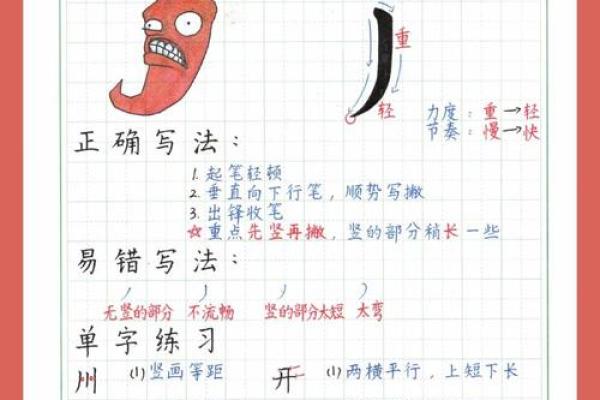 重
轻
力度：重→轻
节奏：慢→快
正确写法：
1.起笔轻顿
2.垂直向下行笔，顺势写撇
3.出锋收笔
☆重点先竖再撇，竖的部分稍长一些
易错写法：
无竖的部分 不流畅 竖的部分太短 太弯
单字练习
川 (1)竖画等距 开 (1)两横平行，上短下长